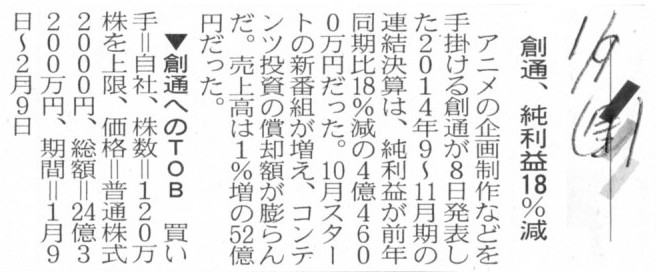 1/9
創通、純利益18%減
アニメの企画制作などを
手掛ける創通が8日発表し
た2014年9~11月期の
連結決算は、純利益が前年
同期比18%減の4億460
0万円だった。10月スター
トの新番組が増え、コンテ
ンツ投資の償却額が膨らん
だ。売上高は1%増の52億
円だった。
▼創通へのTOB 買い
手=自社、株数=120万
株を上限、価格=普通株式
2000円、総額=24億3
200万円、期間=1月9
日~2月9日